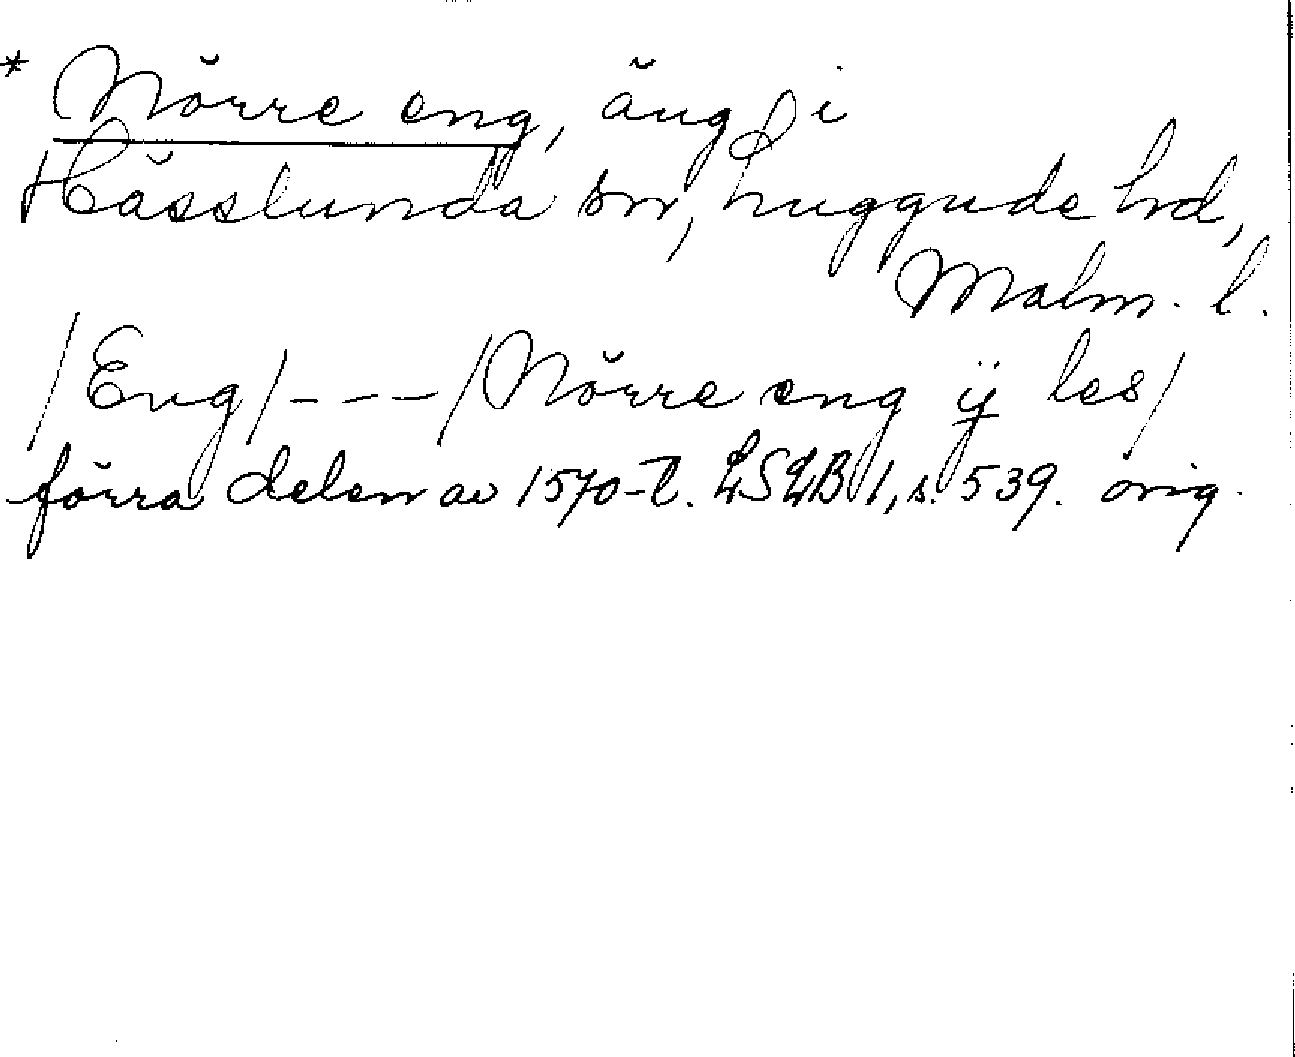 * Nörre eng, äng i
Hässlunda sn, Luggude hd,
Malm. l.
/Eng/---/Nörre eng ÿ les/
förra delen av 1570-t. LSLB 1, s. 539. orig.